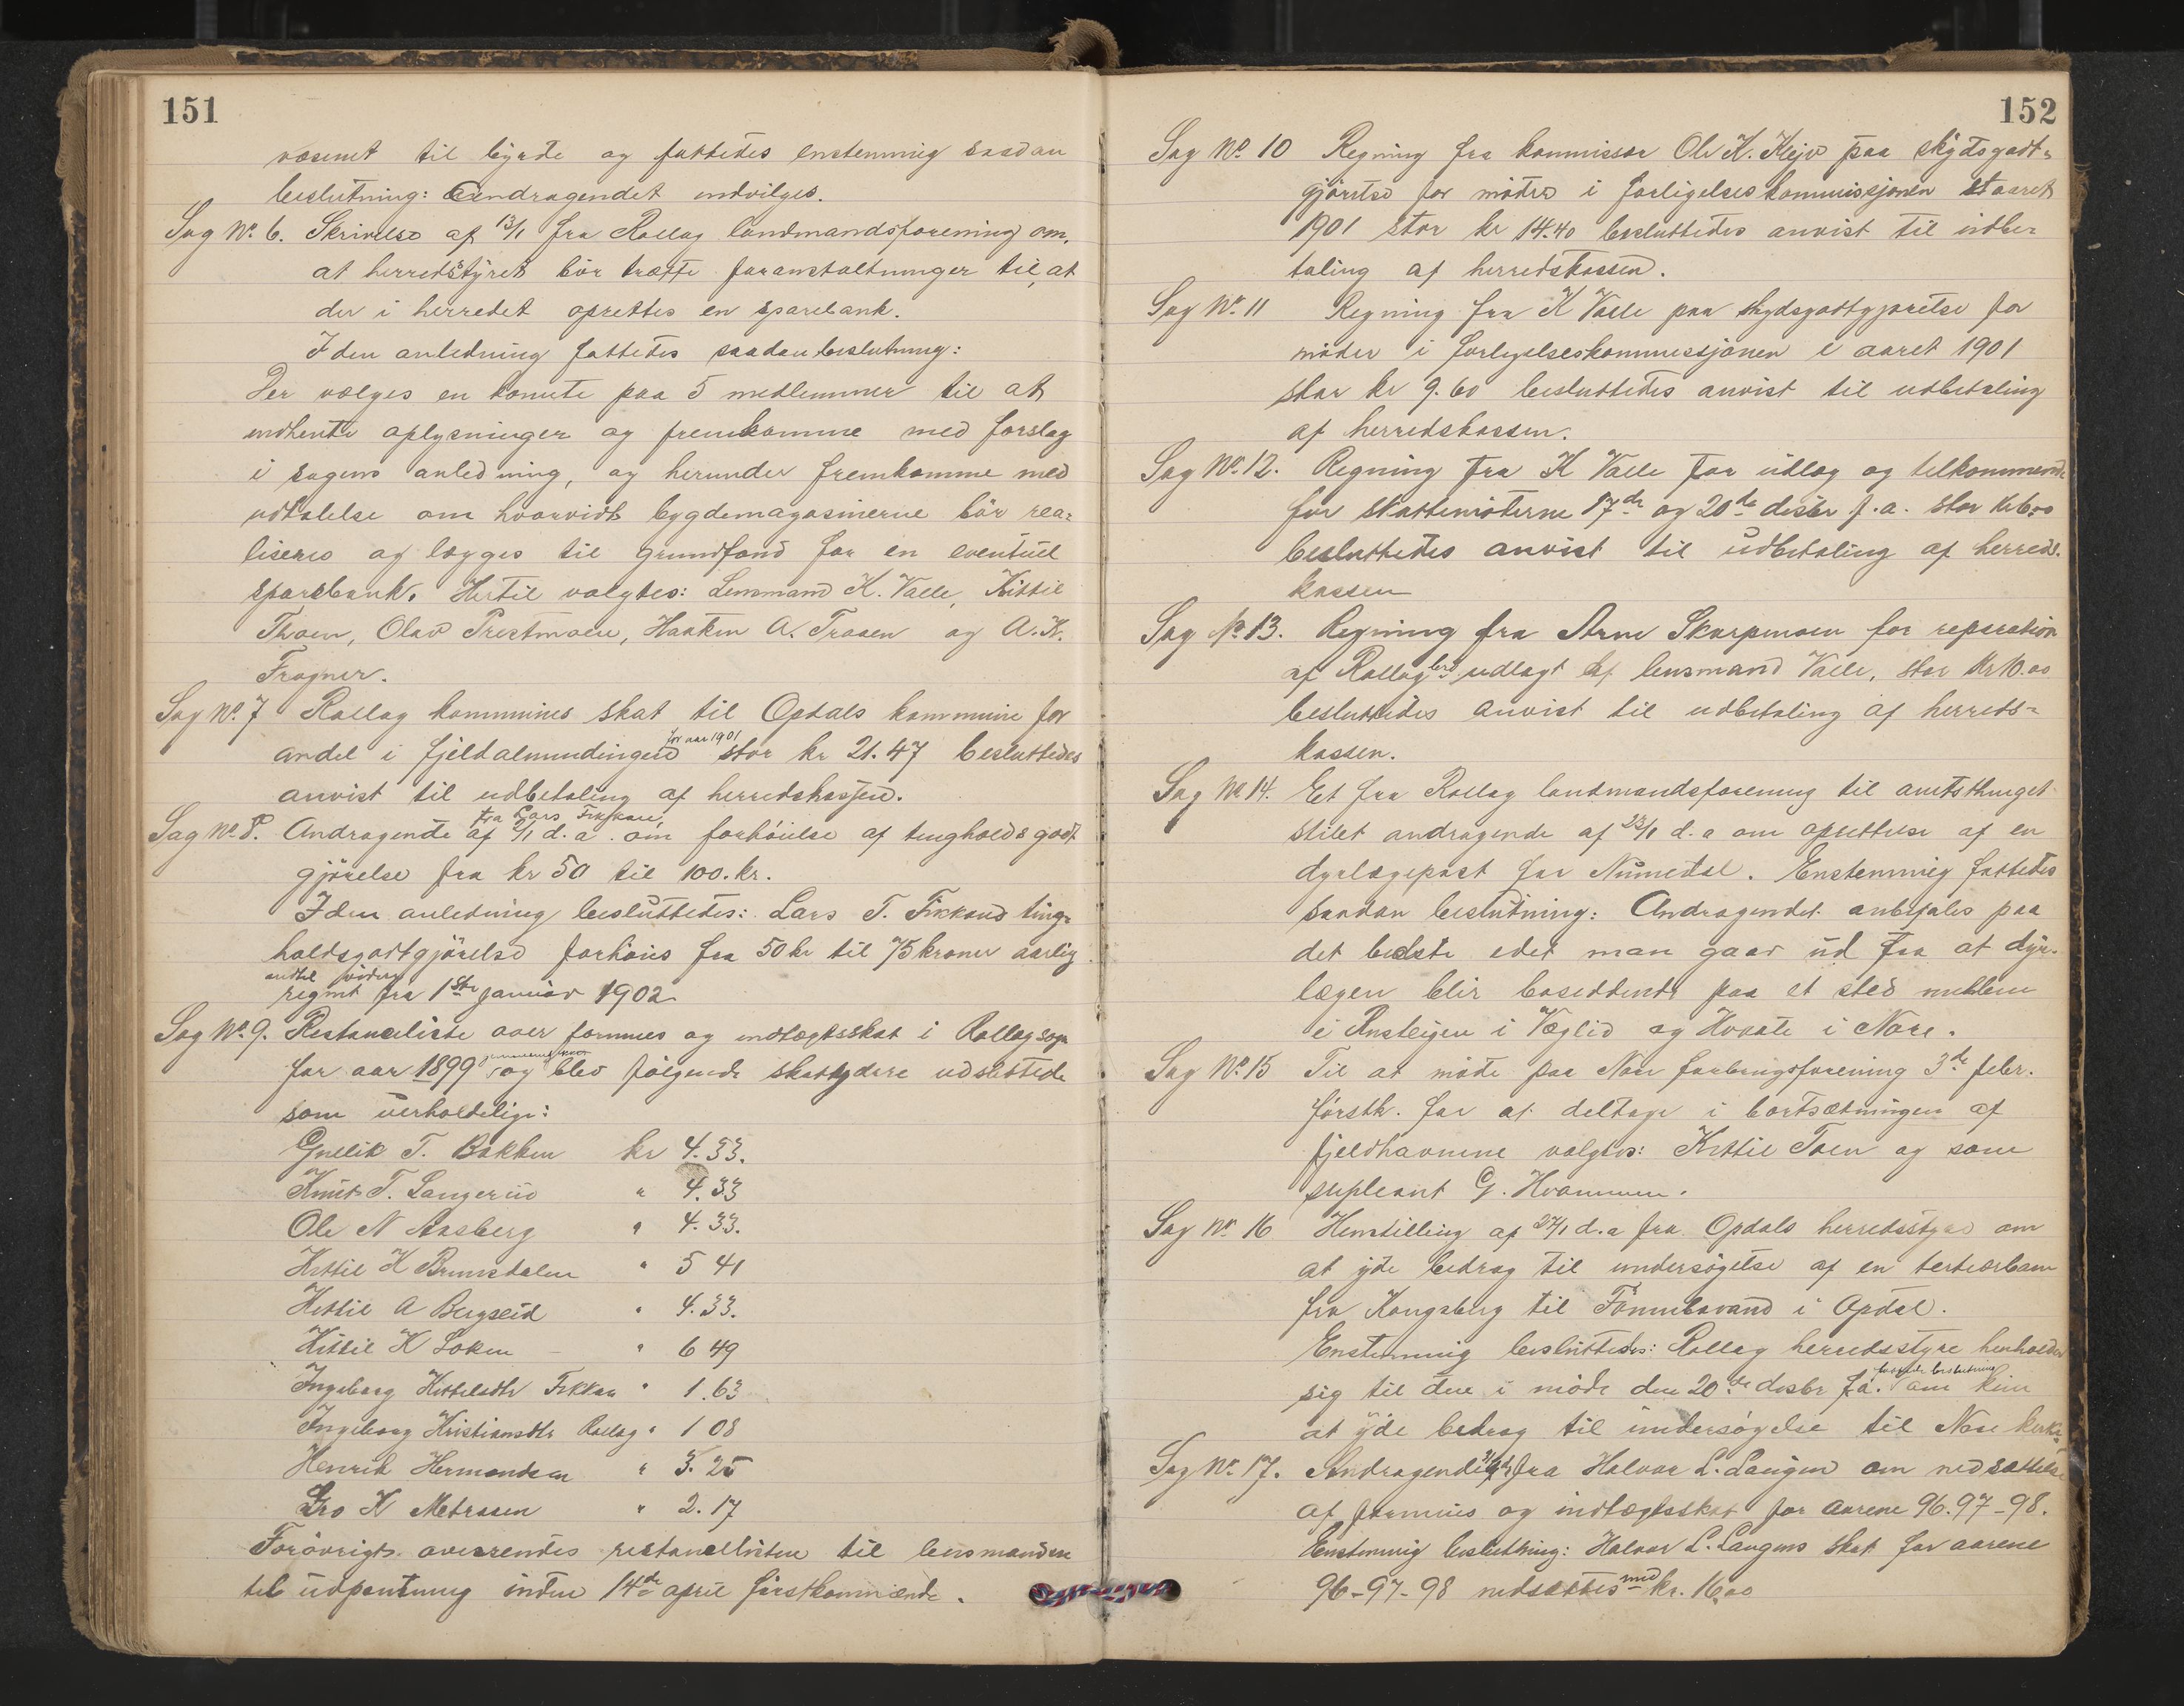 151
væsenet til byrde og fattedes enstemmig saadan
beslutning: Andragendet indvilges.
Sag No. 6. Skrivelse af 13/1 fra Rollag landmandsforening om,
at herredstyret bør træffe foranstaltninger til, at
der i herredet oprettes en sparebank.
I den anledning fattedes saadan beslutning:
Der vælges en komite paa 5 medlemmer til at
indhente oplysninger og fremkomme med forslag
i sagens anledning, og herunder fremkomme med
udtalelse om hvorvidt bygdemagasinerne bør rea-
liseres og lægges til grundfond for en eventuel
sparebank. Hertil valgtes: Lensmand K. Valle, Kittil
Thoen, Olav Prestmoen, Haaken A. Traaen og A. K.
Fragner.
Sag No. 7 Rollag kommunes skat til Opdals kommune for
andel i fjeldalmindingen for aar 1901 stor kr 21.47 besluttedes
anvist til udbetaling af herredskassen.
Sag No 8. Andragende fra Lars Fikkan af 2/1 d.a. om forhøielse af tingholdsgodt
gjørelse fra kr 50 til 100. kr.
I den anledning besluttedes: Lars T. Fikkans ting-
holdsgodtgjørelse forhøies fra 50 kr til 75 kroner aarlig
indtil videre
regnet fra 1ste januar 1902.
Sag No. 9. Restanceliste over formues og indtægtsskat i Rollag sogn
for aar 1899 og blev følgende skatydere udslettede
som uerholdelige:
Gullik T. Bakken kr 4.33.
Knut T. Langerud " 4.33
Ole N Aasberg " 4.33.
Kittil K Brunsdalen " 5 41
Kittil A Bergseid " 4.33.
Kittil K Loken " 6 49
Ingeborg Kittelsdtr Fikkan " 1.63
Ingeborg Kristiansdtr Rollag " 1 08
Henrik Hermandsen " 3.25
Gro K Metraaen " 2.17
Forøvrigt oversendes restancelisten til lensmanden
til udpantning inden 14de april førstkommende.
152
Sag No. 10 Regning fra kommissær Ole K. Kejo paa skydsgodt-
gjørelse for møder i forligelseskommissjonen i aaret
1901 stor kr 14.40 besluttedes anvist til udbe-
taling af herredskassen.
Sag No. 11 Regning fra K Valle paa skydsgodtgjørelse for
møder i forligelseskommissjonen i aaret 1901
stor kr 9.60 besluttedes anvist til udbetaling
af herredskassen.
Sag No. 12. Regning fra K Valle for udlæg og telkommende
for skattemøterne 17de og 20de desbr f.a. stor kr 6.00
besluttedes anvist til udbetaling af herreds-
kassen
Sag No 13. Regning fra Arne Skarpmoen for reparation
af Rollag bro udlagt af lensmand Valle, stor kr 10.00
besluttedes anvist til udbetaling af herreds-
kassen.
Sag No 14. Et fra Rollag landmandsforening til amtsthinget
stilet andragende af 23/1 d.a om oprettelse af en
dyrlægepost for Numedal. Enstemmig fattedes
saadan beslutning: Andragendet anbefales paa
det bedste idet man gaar ud fra at dyr-
lægen blir bosiddende paa et sted mellem
i Ansteigen i Væglid og Hvaale i Nore.
Sag No. 15 Til at møde paa Nore forbrugsforening 3de febr.
førstk. for at deltage i bortsætningen af
fjeldhavnene valgtes: Kittil Toen og som
supleant G. Hvammen.
Sag No. 16 Henstilling af 27/1 d.a fra Opdals herredsstyre om
at yde bidrag til undersøgelse af en tertiærbane
fra Kongsberg til Tønnebøvand i Opdal.
Enstemmig besluttedes: Rollag herredsstyre henholder
sig til den i møde den 20de desbr f.a. fattede beslutning om kun
at yde bidrag til undersøgelse til Nore kirke.
Sag No. 17. Andragende fra Halvor L. Laugen om nedsættelse
af formues og indtægtsskat for aarene 96.97-98.
Enstemmig beslutning: Halvor L. Laugens skat for aarene
96-97-98 nedsættes med kr. 16.00